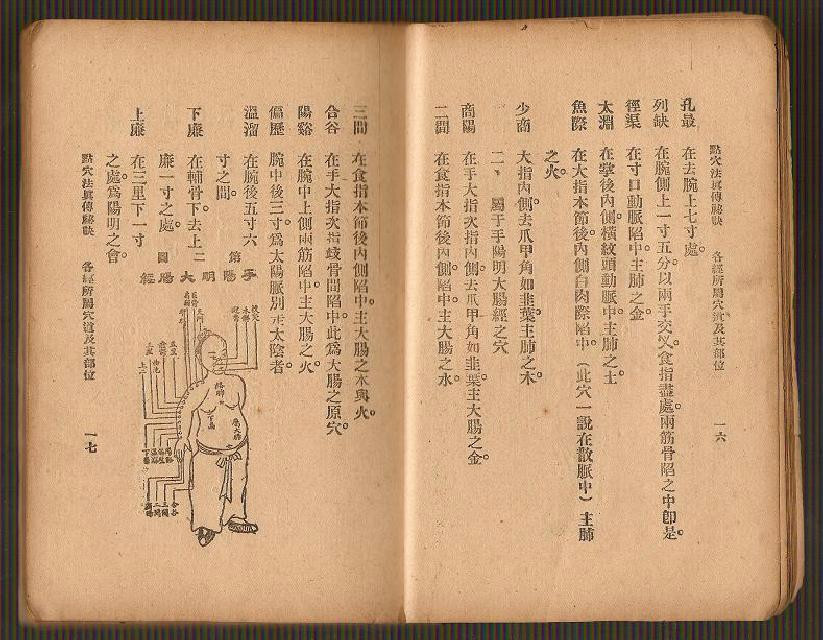 點穴法眞傳秘訣　各經所屬穴道及其部位　一六
孔最　在去腕上七寸處。
列缺　在腕側上一寸五分。以兩手交叉。食指盡處。兩筋骨陷之中卽是。
徑渠　在寸口動脈陷中。主肺之金。
太淵　在掌後內側。橫紋頭動脈中。主肺之土。
魚際　在大指本節後。內側白肉際陷中。（此穴一說在散脈中）主肺
之火。
少商　大指內側。去爪甲角如韭葉。主肺之木。
二、屬于手陽明大腸經之穴
商陽　在手大指次指內側。去爪甲角如韭葉。主大腸之金。
二間　在食指本節後內側陷中。主大腸之水。
三間　在食指本節後內側陷中。主大腸之木與火。
合谷　在手大指次指歧骨間陷中。此爲大腸之原穴。
陽谿　在腕中上側兩筋陷中。主大腸之火。
偏歷　腕中後三寸。爲太陽脈別走太陰者。
溫溜　在腕後五寸六
寸之間。
下廉　在輔骨下。去上二
廉一寸之處。
上廉　在三里下一寸
之處。爲陽明之會。
第
圖
手陽明大腸經
合谷
三間
二間
點穴法眞傳秘訣　各經所屬穴道及其部位　一七